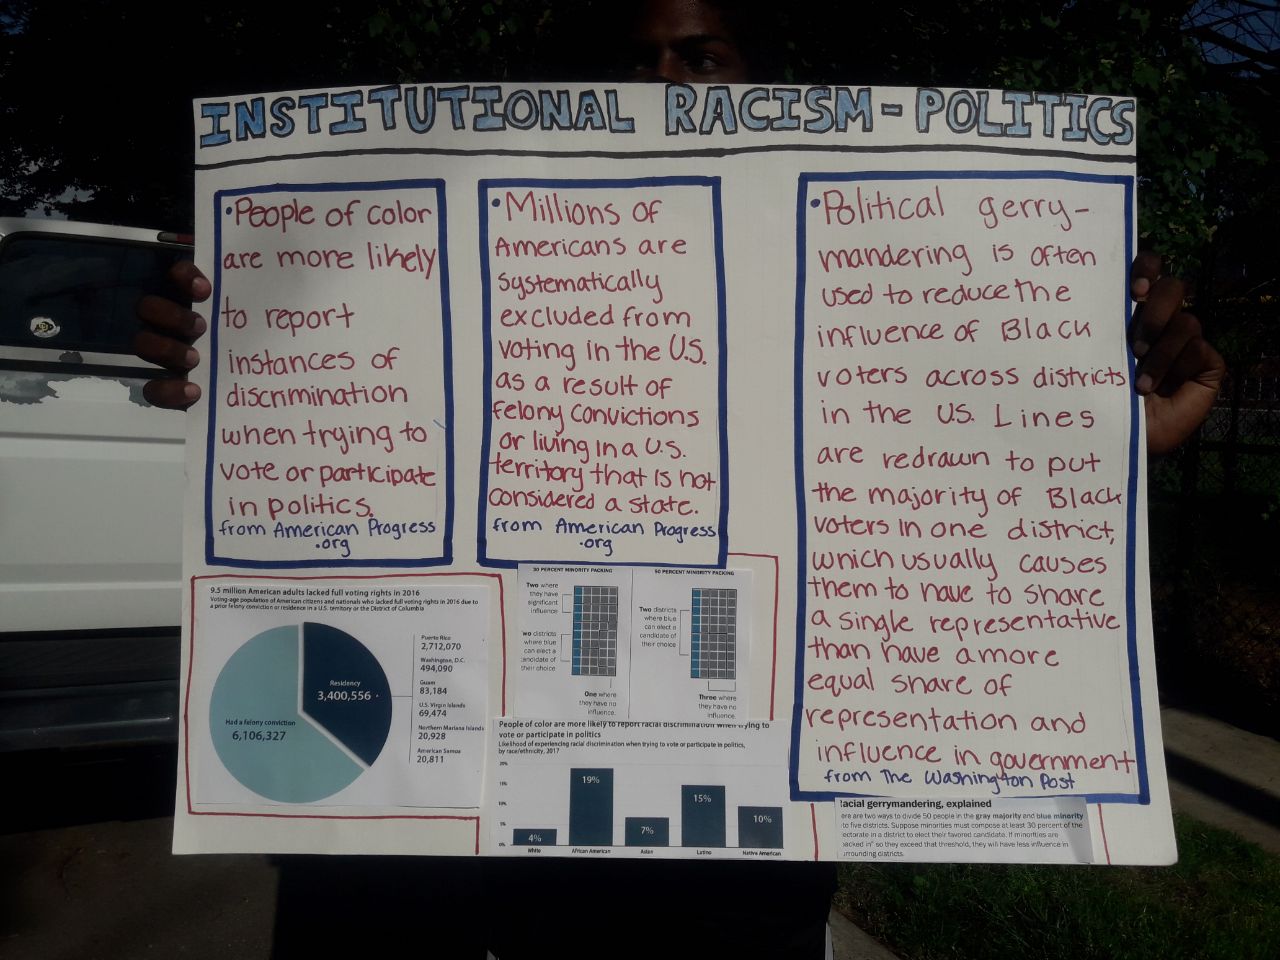 INSTITUTIONAL RACISM - POLITICS
•People of color
are more likely
to report
instances of
discrimination
when trying to
vote or participate
in politics.
from American Progress
.org
•Millions of
Americans are
systematically
excluded from
voting in the U.S.
as a result of
felony convictions
or living in a U.S.
territory that is not
considered a state.
from American Progress
.org
•Political gerry-
mandering is often
used to reduce the
influence of Black
voters across districts
in the U.S. Lines
are redrawn to put
the majority of Black
voters in one district,
which usually causes
them to have to share
a single representative
than have a more
equal share of
representation and
influence in government
from The Washington Post
9.5 million American adults lacked full voting rights in 2016
Voting-age population of American citizens and nationals who lacked full voting rights in 2016 due to
a prior felony conviction or residence in a U.S. territory or the District of Columbia
Residency
3,400,556
Had a felony conviction
6,106,327
Puerto Rico
2,712,070
Washington, D.C.
494,090
Guam
83,184
U.S. Virgin Islands
69,474
Northern Mariana Islands
20,928
American Samoa
20,811
30 PERCENT MINORITY PACKING
Two where
they have
significant
influence
wo districts
where blue
can elect a
candidate of
their choice
One where
they have no
influence.
50 PERCENT MINORITY PACKING
Two districts
where blue
can elect a
candidate of
their choice
Three where
they have no
influence.
People of color are more likely to report racial discrimination when trying to
vote or participate in politics
Likelihood of experiencing racial discrimination when trying to vote or participate in politics,
by race/ethnicity, 2017
20%
15%
10%
5%
0%
4%
19%
7%
15%
10%
White
African American
Asian
Latino
Native American
acial gerrymandering, explained
ere are two ways to divide 50 people in the gray majority and blue minority
to five districts. Suppose minorities must compose at least 30 percent of the
ectorate in a district to elect their favored candidate. If minorities are
packed in" so they exceed that threshold, they will have less influence in
urrounding districts.